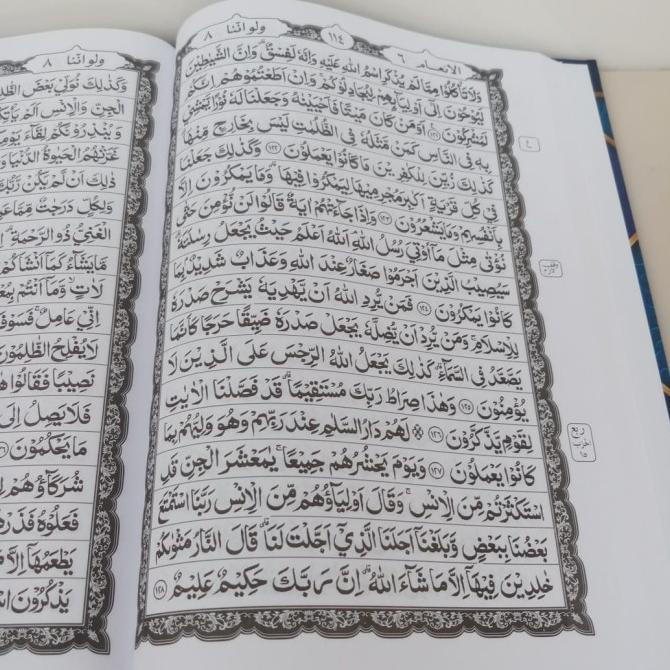 الانعام ٦ ١١٤ ولواننا ٨
وَلَا تَأْكُلُوْا مِمَّا لَمْ يُذْكَرِ اسْمُ اللّٰهِ عَلَيْهِ وَاِنَّهٗ لَفِسْقٌ ۗ وَاِنَّ الشَّيٰطِيْنَ
لَيُوْحُوْنَ اِلٰٓى اَوْلِيَاۤىِٕهِمْ لِيُجَادِلُوْكُمْ ۚ وَاِنْ اَطَعْتُمُوْهُمْ اِنَّكُمْ
لَمُشْرِكُوْنَ ﴿١٢١﴾ اَوَمَنْ كَانَ مَيْتًا فَاَحْيَيْنٰهُ وَجَعَلْنَا لَهٗ نُوْرًا يَّمْشِيْ
بِهٖ فِى النَّاسِ كَمَنْ مَّثَلُهٗ فِى الظُّلُمٰتِ لَيْسَ بِخَارِجٍ مِّنْهَا ۗ
كَذٰلِكَ زُيِّنَ لِلْكٰفِرِيْنَ مَا كَانُوْا يَعْمَلُوْنَ ﴿١٢٢﴾ وَكَذٰلِكَ جَعَلْنَا
فِيْ كُلِّ قَرْيَةٍ اَكٰبِرَ مُجْرِمِيْهَا لِيَمْكُرُوْا فِيْهَا ۗ وَمَا يَمْكُرُوْنَ اِلَّا
بِاَنْفُسِهِمْ وَمَا يَشْعُرُوْنَ ﴿١٢٣﴾ وَاِذَا جَاۤءَتْهُمْ اٰيَةٌ قَالُوْا لَنْ نُّؤْمِنَ حَتّٰى
نُؤْتٰى مِثْلَ مَآ اُوْتِيَ رُسُلُ اللّٰهِ ۘ اَللّٰهُ اَعْلَمُ حَيْثُ يَجْعَلُ رِسٰلَتَهٗ ۗ
سَيُصِيْبُ الَّذِيْنَ اَجْرَمُوْا صَغَارٌ عِنْدَ اللّٰهِ وَعَذَابٌ شَدِيْدٌۢ بِمَا
كَانُوْا يَمْكُرُوْنَ ﴿١٢٤﴾ فَمَنْ يُّرِدِ اللّٰهُ اَنْ يَّهْدِيَهٗ يَشْرَحْ صَدْرَهٗ
لِلْاِسْلَامِ ۚ وَمَنْ يُّرِدْ اَنْ يُّضِلَّهٗ يَجْعَلْ صَدْرَهٗ ضَيِّقًا حَرَجًا كَاَنَّمَا
يَصَّعَّدُ فِى السَّمَاۤءِ ۗ كَذٰلِكَ يَجْعَلُ اللّٰهُ الرِّجْسَ عَلَى الَّذِيْنَ لَا
يُؤْمِنُوْنَ ﴿١٢٥﴾ وَهٰذَا صِرَاطُ رَبِّكَ مُسْتَقِيْمًا ۗ قَدْ فَصَّلْنَا الْاٰيٰتِ
لِقَوْمٍ يَّذَّكَّرُوْنَ ﴿١٢٦﴾ ۞ لَهُمْ دَارُ السَّلٰمِ عِنْدَ رَبِّهِمْ وَهُوَ وَلِيُّهُمْ بِمَا
كَانُوْا يَعْمَلُوْنَ ﴿١٢٧﴾ وَيَوْمَ يَحْشُرُهُمْ جَمِيْعًا ۚ يٰمَعْشَرَ الْجِنِّ قَدِ
اسْتَكْثَرْتُمْ مِّنَ الْاِنْسِ ۚ وَقَالَ اَوْلِيَاۤؤُهُمْ مِّنَ الْاِنْسِ رَبَّنَا اسْتَمْتَعَ
بَعْضُنَا بِبَعْضٍ وَّبَلَغْنَآ اَجَلَنَا الَّذِيْٓ اَجَّلْتَ لَنَا ۗ قَالَ النَّارُ مَثْوٰىكُمْ
خٰلِدِيْنَ فِيْهَآ اِلَّا مَا شَاۤءَ اللّٰهُ ۗ اِنَّ رَبَّكَ حَكِيْمٌ عَلِيْمٌ ﴿١٢٨﴾
وقف لازم
ربع حزب ١٥
ولواننا ٨
وَكَذٰلِكَ نُوَلِّيْ بَعْضَ
الْجِنِّ وَالْاِنْسِ اَلَمْ
وَيُنْذِرُوْنَكُمْ لِقَاۤءَ
غَرَّتْهُمُ الْحَيٰوةُ الدُّنْيَا
ذٰلِكَ اَنْ لَّمْ يَكُنْ رَّبُّكَ
وَلِكُلٍّ دَرَجٰتٌ
الْغَنِيُّ ذُو الرَّحْمَةِ ۗ
مَّا يَشَاۤءُ كَمَآ اَنْشَاَكُمْ
لَاٰتٍ ۙ وَّمَآ اَنْتُمْ
اِنِّيْ عَامِلٌ ۚ فَسَوْفَ
لَا يُفْلِحُ الظّٰلِمُوْنَ
نَصِيْبًا فَقَالُوْا
فَلَا يَصِلُ اِلَى
مَا يَحْكُمُوْنَ
شُرَكَاۤؤُهُمْ
فَعَلُوْهُ
يَطْعَمُهَآ اِلَّا
يَذْكُرُوْنَ